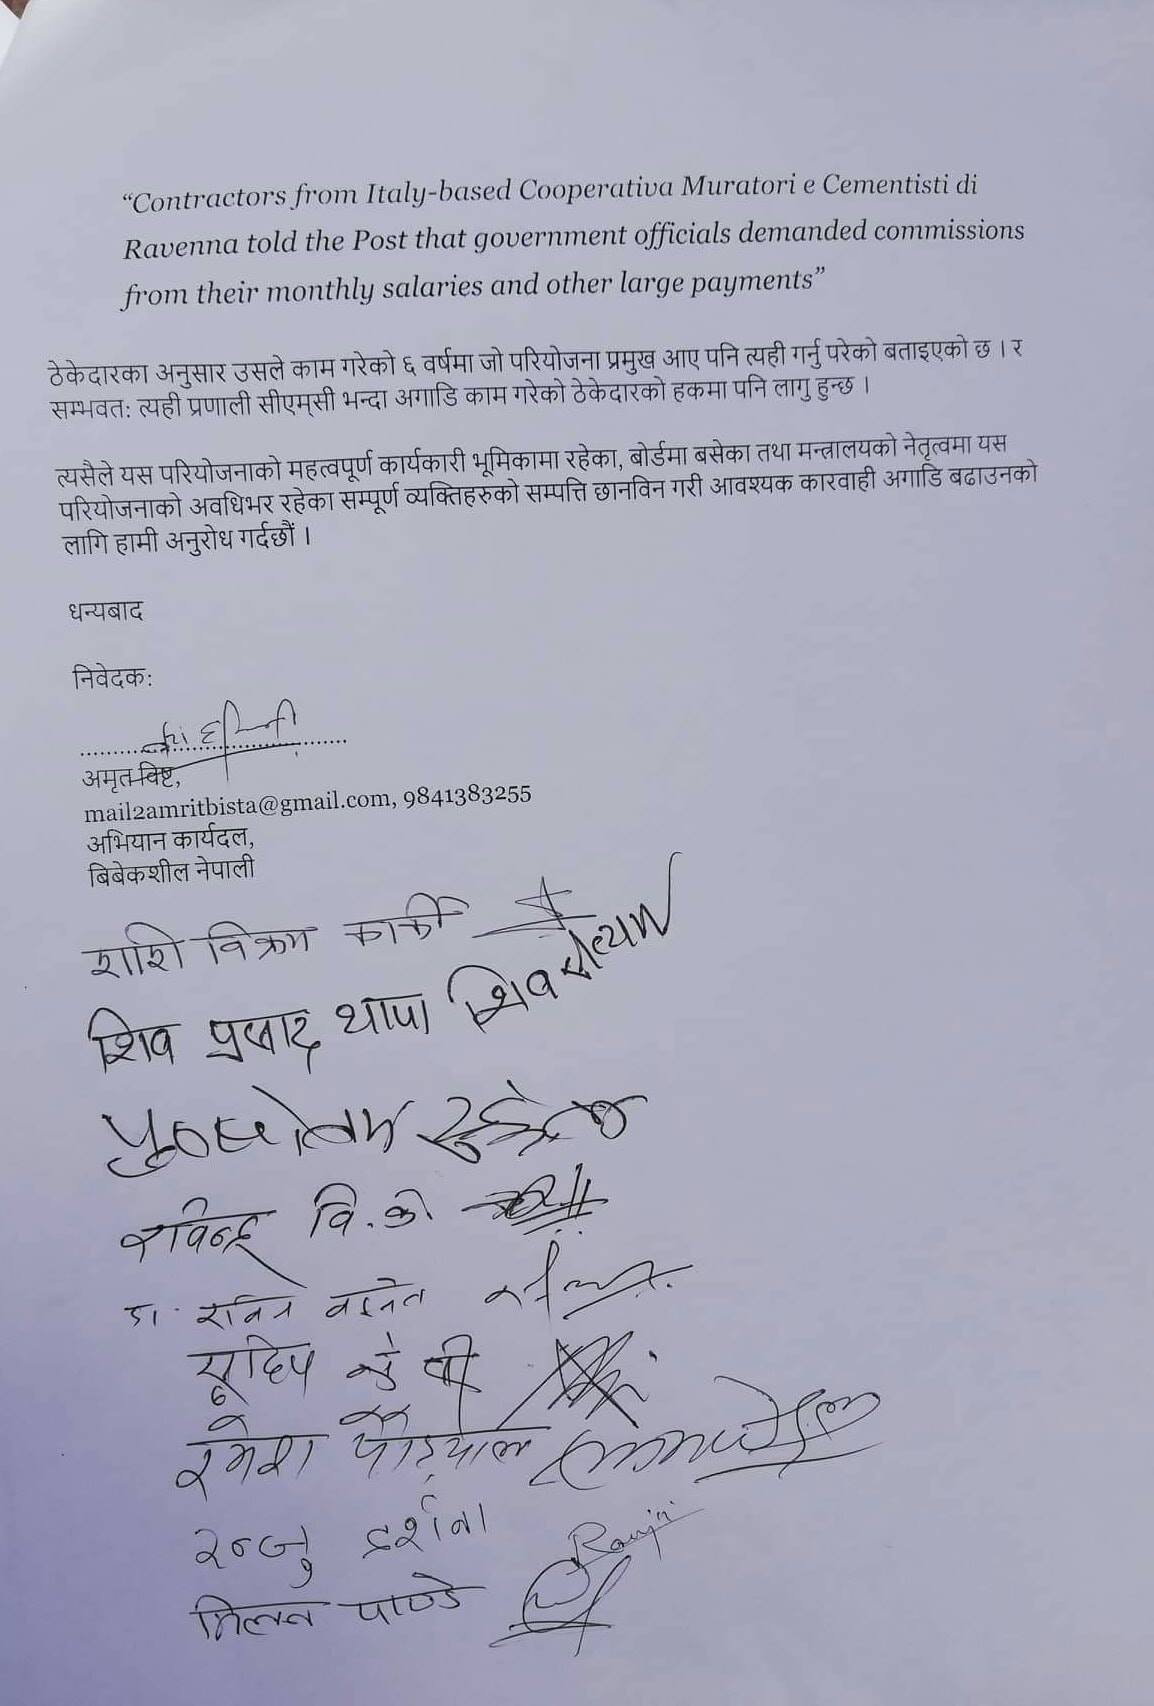 “Contractors from Italy-based Cooperativa Muratori e Cementisti di
Ravenna told the Post that government officials demanded commissions
from their monthly salaries and other large payments”
ठेकेदारका अनुसार उसले काम गरेको ६ वर्षमा जो परियोजना प्रमुख आए पनि त्यही गर्नु परेको बताइएको छ । र
सम्भवत: त्यही प्रणाली सीएम्‌सी भन्दा अगाडि काम गरेको ठेकेदारको हकमा पनि लागु हुन्छ ।
त्यसैले यस परियोजनाको महत्वपूर्ण कार्यकारी भूमिकामा रहेका, बोर्डमा बसेका तथा मन्त्रालयको नेतृत्वमा यस
परियोजनाको अवधिभर रहेका सम्पूर्ण व्यक्तिहरुको सम्पत्ति छानविन गरी आवश्यक कारवाही अगाडि बढाउनको
लागि हामी अनुरोध गर्दछौं ।
धन्यबाद
निवेदक:
अमृत विष्ट,
mail2amritbista@gmail.com, 9841383255
अभियान कार्यदल,
बिबेकशील नेपाली
शशि विक्रम कार्की
शिव प्रसाद थापा शिव
पुरुषोत्तम
रविन्द्र वि.क.
डा.
सुदिप के सी
रमेश पौड्याल
रन्जु दर्शना Ranju
मिलन पाण्डे